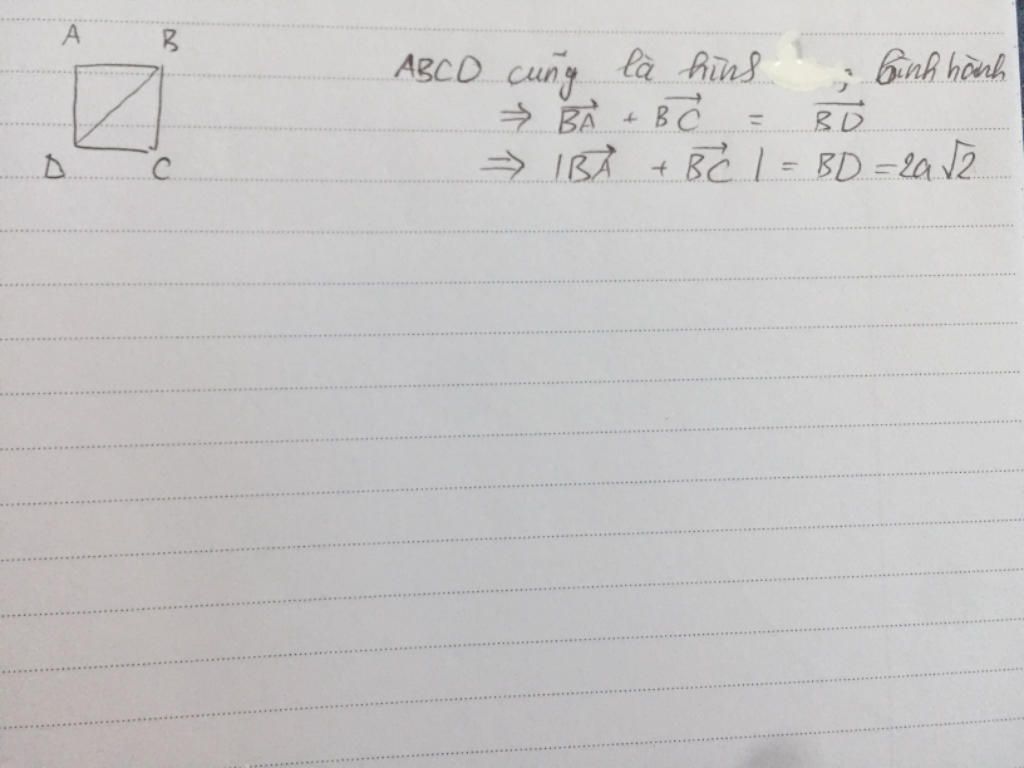 A B
D C
ABCD cũng là hình ; bình hành
⇒ \overrightarrow{BA} + \overrightarrow{BC} = \overrightarrow{BD}
⇒ |\overrightarrow{BA} + \overrightarrow{BC}| = BD = 2a√2